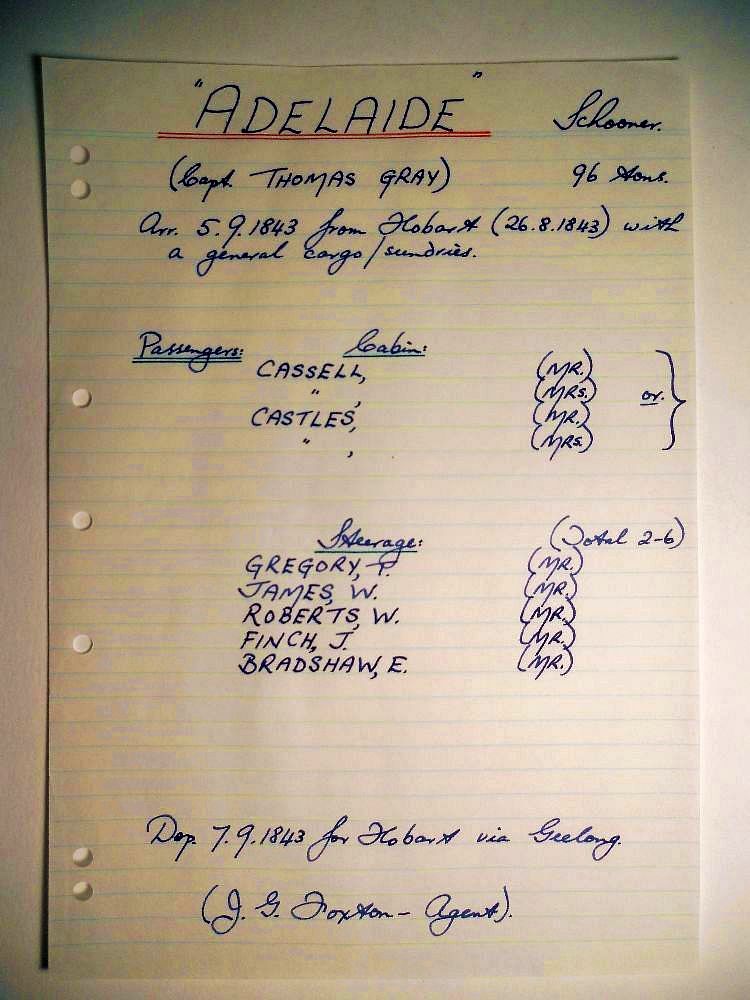 "ADELAIDE" Schooner.
(Capt. THOMAS GRAY) 96 tons.
Arr. 5.9.1843 from Hobart (26.8.1843) with
a general cargo/sundries.
Passengers: Cabin:
CASSELL, (MR.)
" , (MRS.) or.
CASTLES, (MR.)
" , (MRS.)
Steerage: (Total 2-6)
GREGORY, P. (MR.)
JAMES, W. (MR.)
ROBERTS, W. (MR.)
FINCH, J. (MR.)
BRADSHAW, E. (MR.)
Dep. 7.9.1843 for Hobart via Geelong.
(J. G. Foxton - Agent).